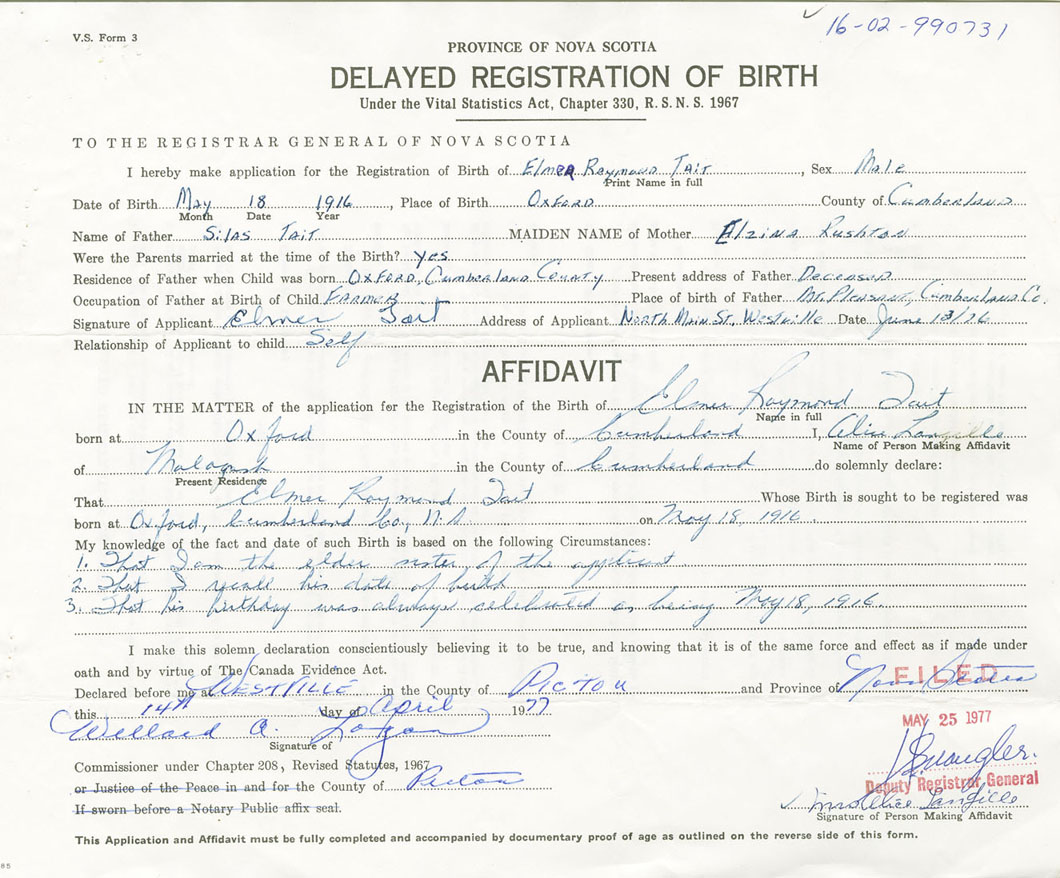 V.S. Form 3
16-02-990731
PROVINCE OF NOVA SCOTIA
DELAYED REGISTRATION OF BIRTH
Under the Vital Statistics Act, Chapter 330, R.S.N.S. 1967
TO THE REGISTRAR GENERAL OF NOVA SCOTIA
I hereby make application for the Registration of Birth of Elmer Raymond Tait, Sex Male
Print Name in full
Date of Birth May 18 1916, Place of Birth Oxford County of Cumberland
Month Date Year
Name of Father Silas Tait MAIDEN NAME of Mother Elzina Rushton
Were the Parents married at the time of the Birth? Yes
Residence of Father when Child was born Oxford, Cumberland County Present address of Father Deceased
Occupation of Father at Birth of Child Farmer Place of birth of Father Mt. Pleasant, Cumberland Co.
Signature of Applicant Elmer Tait Address of Applicant North Main St, Westville Date June 18/76
Relationship of Applicant to child Self
AFFIDAVIT
IN THE MATTER of the application for the Registration of the Birth of Elmer Raymond Tait
Name in full
born at Oxford in the County of Cumberland I, Alice Langille
Name of Person Making Affidavit
of Malagash in the County of Cumberland do solemnly declare:
Present Residence
That Elmer Raymond Tait Whose Birth is sought to be registered was
born at Oxford, Cumberland Co., N.S. on May 18, 1916.
My knowledge of the fact and date of such Birth is based on the following Circumstances:
1. That I am the elder sister of the applicant
2. That I recall his date of birth
3. That his birthday was always celebrated as being May 18, 1916.
I make this solemn declaration conscientiously believing it to be true, and knowing that it is of the same force and effect as if made under
oath and by virtue of The Canada Evidence Act.
Declared before me at WESTVILLE in the County of Pictou and Province of Nova Scotia
FILED
this 14th day of April 1977
MAY 25 1977
Willard A. Logan
Signature of
Commissioner under Chapter 208, Revised Statutes, 1967
or Justice of the Peace in and for the County of Pictou
Deputy Registrar General
If sworn before a Notary Public affix seal.
Mrs Alice Langille
Signature of Person Making Affidavit
This Application and Affidavit must be fully completed and accompanied by documentary proof of age as outlined on the reverse side of this form.
85